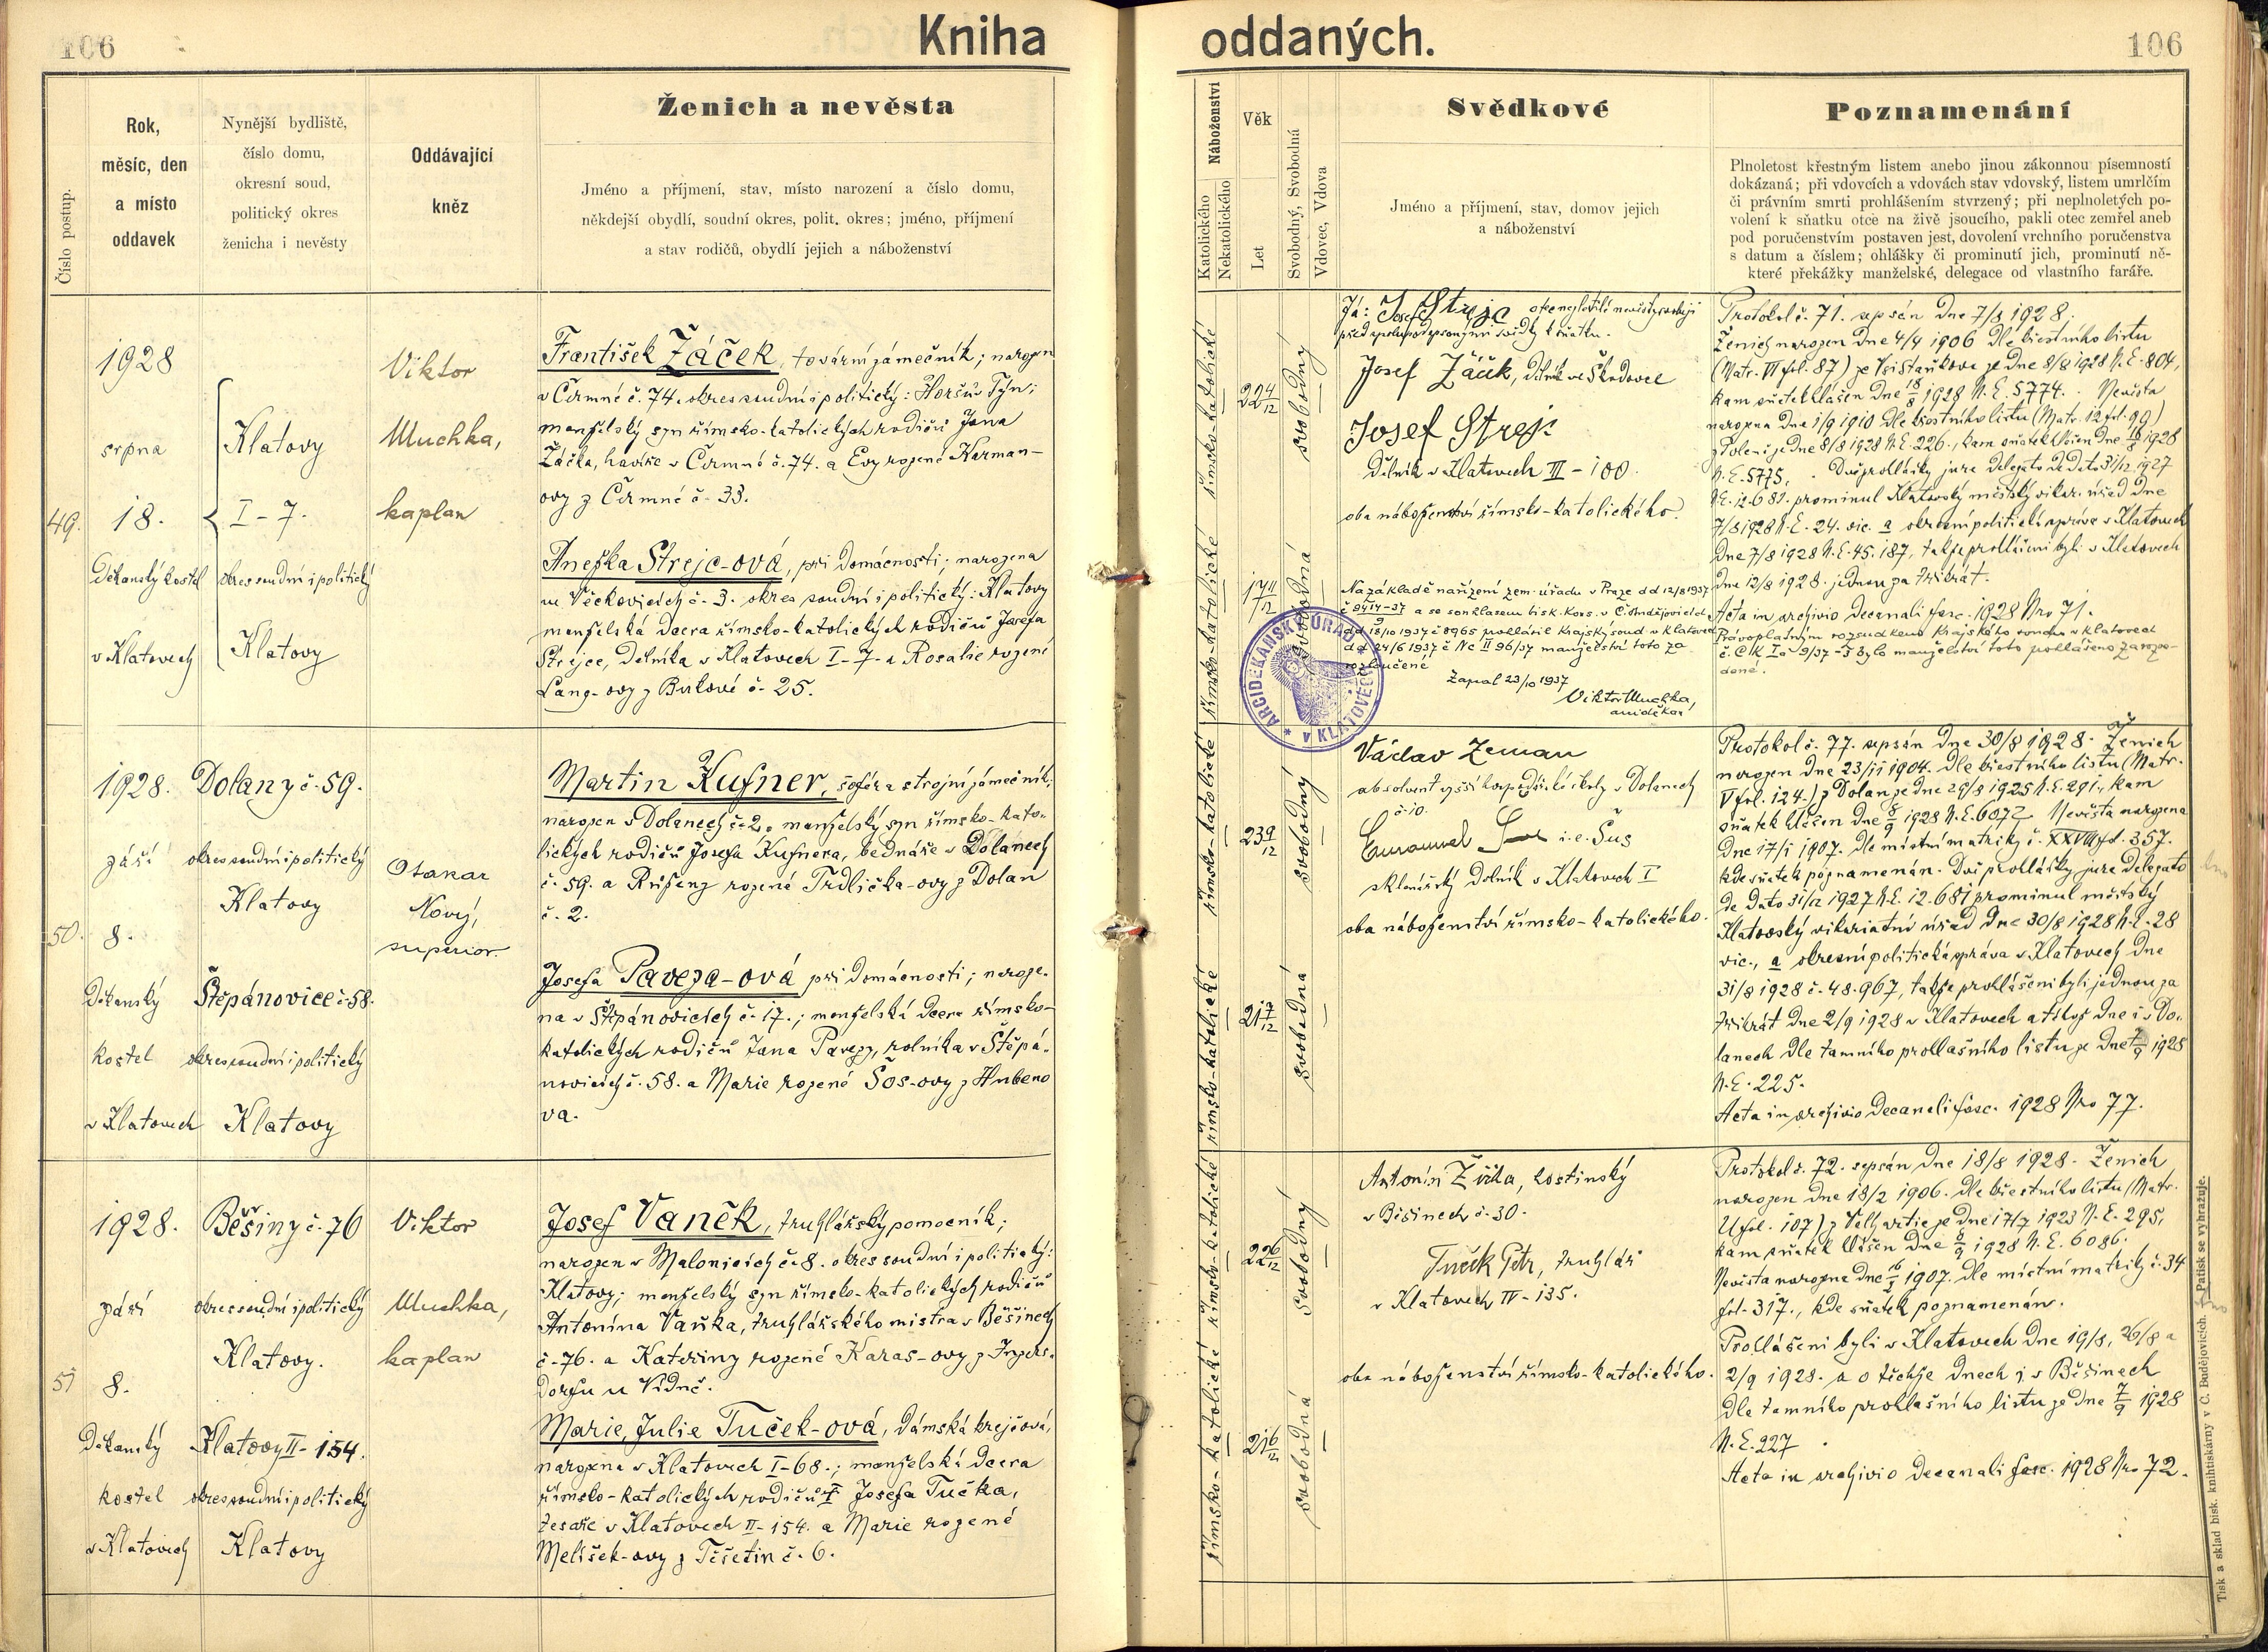 106
Kniha
oddaných.
106
Číslo postup.
Rok,
měsíc, den
a místo
oddavek
Nynější bydliště,
číslo domu,
okresní soud,
politický okres
ženicha i nevěsty
Oddávající
kněz
Ženich a nevěsta
Jméno a příjmení, stav, místo narození a číslo domu,
někdejší obydlí, soudní okres, polit. okres; jméno, příjmení
a stav rodičů, obydlí jejich a náboženství
Náboženství
Katolického
Nekatolického
Věk
Let
Svobodný, Svobodná
Vdovec, Vdova
Svědkové
Jméno a příjmení, stav, domov jejich
a náboženství
Poznamenání
Plnoletost křestným listem anebo jinou zákonnou písemností
dokázaná; při vdovcích a vdovách stav vdovský, listem umrlčím
či právním smrti prohlášením stvrzený; při neplnoletých po-
volení k sňatku otce na živě jsoucího, pakli otec zemřel aneb
pod poručenstvím postaven jest, dovolení vrchního poručenstva
s datum a číslem; ohlášky či prominutí jich, prominutí ně-
které překážky manželské, delegace od vlastního faráře.
49.
1928
srpna
18.
Děkanský kostel
v Klatovech
Klatovy
I-7.
okres soudní i politický
Klatovy
Viktor
Muchka,
kaplan
František Žáček, tovární zámečník; narozen
v Čermné č. 74. okres soudní i politický: Horšův Týn;
manželský syn římsko-katolických rodičů Jana
Žáčka, havíře v Čermné č. 74. a Evy rozené Karman-
ovy z Čermné č. 33.
Anežka Strejc-ová, při domácnosti; narozena
ve Věckovicích č. 3. okres soudní i politický: Klatovy
manželská dcera římsko-katolických rodičů Josefa
Strejce, dělníka v Klatovech I-7. a Rosalie rozené
Lang-ovy z Birkové č. 25.
římsko-katolické
římsko-katolické
22 4/12
17 11/12
svobodný
svobodná
Já: Josef Strejc otec nezletilé nevěsty svoluji
před spolupodepsanými svědky k sňatku.
Josef Žáček, dělník ve Škodovce
Josef Strejc
dělník v Klatovech III-100.
oba náboženství římsko-katolického.
Na základě nařízení zem. úřadu v Praze dd 12/8 1937
a se souhlasem bisk. kons. v Č. Budějovicích
dd 18/10 1937 č 8965 prohlásil Krajský soud v Klatovech
dd 24/6 1937 č Nc II 96/37 manželství toto za
rozloučené
Zapsal 23/10 1937
Viktor Muchka,
arciděkan
ARCIDĚKANSKÝ ÚŘAD
V KLATOVECH
Protokol č. 71. sepsán dne 7/8 1928.
Ženich narozen dne 4/4 1906 dle křestního listu
(Matr. VI fol. 87) ze dne 8/8 1928 N.E. 804,
kam sňatek hlášen dne 18/8 1928 N.E. 5774. Nevěsta
narozena dne 1/9 1910 dle křestního listu (Matr. 12 fol. 99)
z Poleně ze dne 8/8 1928 N.E. 226., kam sňatek hlášen dne 18/8 1928
N.E. 5775. Dvě prohlášky jure delegato de dato 31/12 1927
N.E. 12.681. prominul Klatovský městský vikar. úřad dne
7/8 1928 N.E. 24. vic. a okresní politická správa v Klatovech
dne 7/8 1928 N.E. 45.187, takže prohlášeni byli v Klatovech
dne 12/8 1928. jednou za třikrát.
Acta in archivio decanali fasc. 1928 Nro 71.
Právoplatným rozsudkem Krajského soudu v Klatovech
č. Ck Ia 9/37-5 bylo manželství toto prohlášeno za rozve-
dené.
50.
1928.
září
8.
Děkanský
kostel
v Klatovech
Dolany č. 59.
okres soudní i politický
Klatovy
Štěpánovice č. 58.
okres soudní i politický
Klatovy
Otakar
Nový,
superior.
Martin Kufner, šofér a strojní zámečník;
narozen v Dolanech č. 2. manželský syn římsko-kato-
lických rodičů Josefa Kufnera, bednáře v Dolanech
č. 59. a Růženy rozené Trdlička-ovy z Dolan
č. 2.
Josefa Paveza-ová při domácnosti; naroze-
na v Štěpánovicích č. 17.; manželská dcera římsko-
katolických rodičů Jana Pavezy, rolníka v Štěpá-
novicích č. 58. a Marie rozené Šos-ovy z Hubeno
va.
římsko-katolické
římsko-katolické
23 9/12
21 7/12
svobodný
svobodná
Václav Zeman
absolvent vyšší hospodářské školy v Dolanech
č. 10.
Emanuel Šus i.e. Šus
sklenářský dělník v Klatovech I
oba náboženství římsko-katolického.
Protokol č. 77. sepsán dne 30/8 1928. Ženich
narozen dne 23/11 1904. dle křestního listu (Matr.
V fol. 124.) z Dolan ze dne 29/8 1925 N.E. 291., kam
sňatek hlášen dne 8/9 1928 N.E. 6072 Nevěsta narozena
dne 17/1 1907. dle místní matriky č. XXVII fol. 357.
kde sňatek poznamenán. Dvě prohlášky jure delegato
de dato 31/12 1927 N.E. 12.681 prominul městský
Klatovský vikariatní úřad dne 30/8 1928 N.E. 28
vic., a okresní politická správa v Klatovech dne
31/8 1928 č. 48.967, takže prohlášeni byli jednou za
třikrát dne 2/9 1928 v Klatovech a téhož dne i v Do-
lanech dle tamního prohlašního listu ze dne 7/9 1928
N.E. 225.
Acta in archivio decanali fasc. 1928 Nro 77.
51
1928.
září
8.
Děkanský
kostel
v Klatovech
Běšiny č. 76
okres soudní i politický
Klatovy.
Klatovy II-154.
okres soudní i politický
Klatovy
Viktor
Muchka,
kaplan
Josef Vaněk, truhlářský pomocník;
narozen v Malonicích č. 8. okres soudní i politický:
Klatovy; manželský syn římsko-katolických rodičů
Antonína Vaňka, truhlářského mistra v Běšinech
č. 76. a Kateřiny rozené Karas-ovy z Inzers-
dorfu u Vídně.
Marie Julie Tuček-ová, dámská krejčová,
narozena v Klatovech I-68.; manželská dcera
římsko-katolických rodičů † Josefa Tučka,
tesaře v Klatovech II-154. a Marie rozené
Melíšek-ovy z Těšetin č. 6.
římsko-katolické
římsko-katolické
22 6/12
21 6/12
svobodný
svobodná
Antonín Žirka, hostinský
v Běšinech č. 30.
Tuček Petr, truhlář
v Klatovech IV-135.
oba náboženství římsko-katolického.
Protokol č. 72. sepsán dne 18/8 1928. Ženich
narozen dne 18/2 1906. dle křestního listu (Matr.
fol. 107) z Velhartic ze dne 17/7 1923 N.E. 295,
kam sňatek hlášen dne 8/9 1928 N.E. 6086.
Nevěsta narozena dne 1907. dle místní matriky č. 34
fol. 317., kde sňatek poznamenán.
Prohlášeni byli v Klatovech dne 19/8, 26/8 a
2/9 1928. a o těchže dnech i v Běšinech
dle tamního prohlašního listu ze dne 7/9 1928
N.E. 227.
Acta in archivio decanali fasc. 1928 Nro 72.
Tisk a sklad bisk. knihtiskárny v Č. Budějovicích. Patisk se vyhražuje.